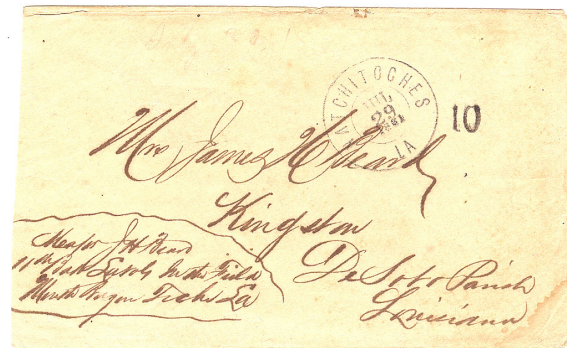 NATCHITOCHES
JUL
29
LA
10
Mrs James H Beard
Kingston
De Soto Parish
Louisiana
Major J H Beard
11th Batt La Vols In the Field
Mouth Bayou Teche La